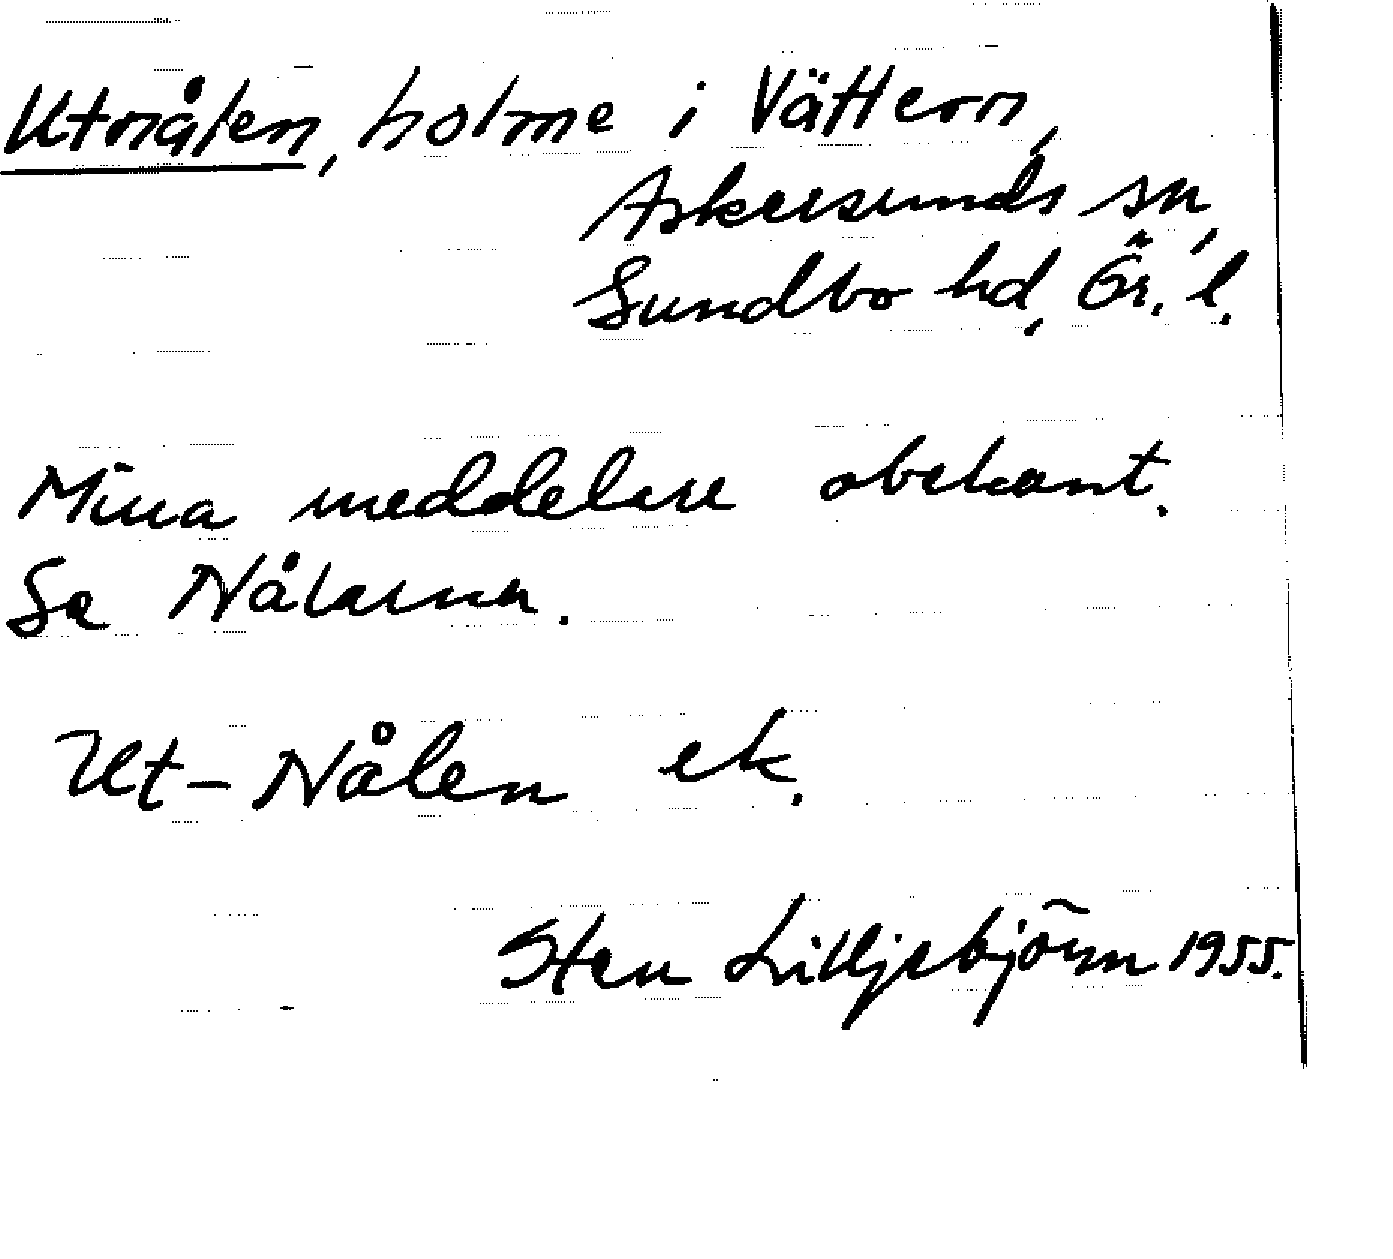 Utnålen, holme i Vättern,
Askersunds sn,
Sundbo hd, Ör. l.
Mina meddelare obekant.
Se Nålarna.
Ut-Nålen ek.
Sten Lilljebjörn 1955.